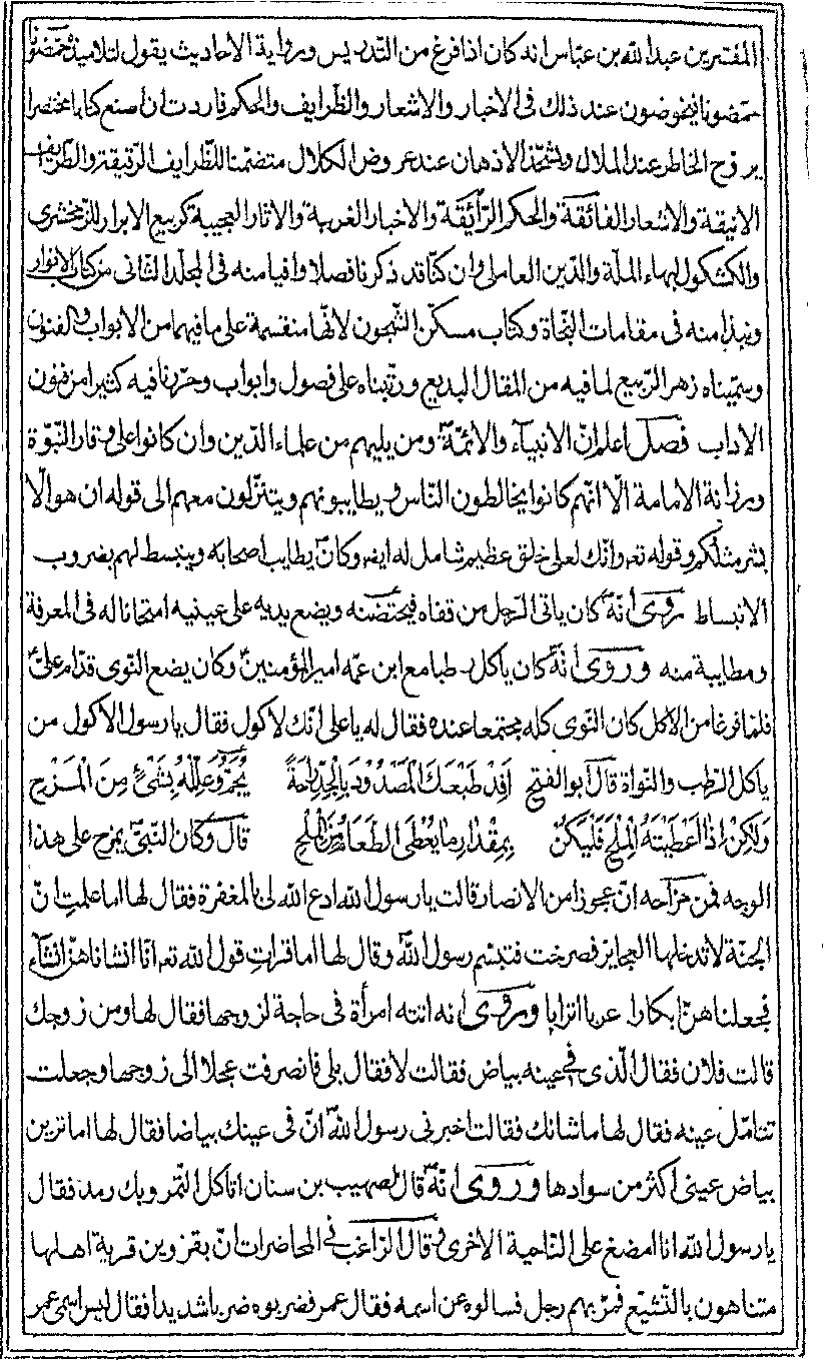 المفسرين عبد الله بن عباس انه كان اذا فرغ من التدريس ورواية الاحاديث يقول لتلاميذه حمضونا
حمضونا فيخوضون عند ذلك فى الاخبار والاشعار والظرايف والحكم فاردت ان اصنع كتابا مختصرا
يروّح الخاطر عند الملال ويشحّذ الاذهان عند عروض الكلال متضمنا للظرايف الرّقيقة والطّرايف
الانيقة والاشعار الفائقة والحكم الرّائقة والاخبار الغريبة والاثار العجيبة كربيع الابرار للزمخشرى
والكشكول لبهاء الملّة والدّين العاملى وان كنّا قد ذكرنا فصلا وافيا منه فى المجلد الثّانى من كتاب الانوار
ونبذا منه فى مقامات النّجاة وكتاب مسكّن الشّجون لانّها منقسمة على ما فيهما من الابواب والفنون
وسمّيناه زهر الرّبيع لما فيه من المقال البديع ورتّبناه على فصول وابواب وحرّرنا فيه كثيرا من فنون
الاداب فصل اعلم انّ الانبيآء والائمّة ومن يليهم من علماء الدّين وان كانوا على وقار النّبوّة
ورزانة الامامة الّا انّهم كانوا يخالطون النّاس ويطايبونهم ويتنزّلون معهم الى قوله ان هو الّا
بشر مثلكم وقوله تعه وانّك لعلى خلق عظيم شامل له ايضه وكان يطايب اصحابه وينبسط لهم بضروب
الانبساط روى انّه كان ياتى الرّجل من قفاه فيحتضنه ويضع يديه على عينيه امتحانا له فى المعرفة
ومطايبة منه وروى انّه كان ياكل رطبا مع ابن عمّه امير المؤمنين وكان يضع النّوى قدّام علىّ
فلمّا فرغا من الاكل كان النّوى كله مجتمعا عنده فقال له يا على انّك لاكول فقال يا رسول الاكول من
ياكل الرّطب والنّواة قال ابو الفتح اَفِدْ طَبْعَكَ الْمَصْدُودَ بِالْجِدِّ رَاحَةً يُجَمُّ وَعَلِّلْهُ بِشَىْءٍ مِنَ الْمَزْحِ
وَلٰكِنْ اِذَا اَعْطَيْتَهُ الْمَزْحَ فَلْيَكُنْ بِمِقْدَارِ مَا يُعْطَى الطَّعَامُ مِنَ الْمِلْحِ قال وكان النّبىّ يمزح على هذا
الوجه فمن مزاحه انّ عجوزا من الانصار قالت يا رسول الله ادع الله لى بالمغفرة فقال لها اما علمتِ انّ
الجنّة لا تدخلها العجايز فصرخت فتبسّم رسول الله وقال لها اما قراتِ قول الله تعه انّا انشاناهنّ انشآء
فجعلناهنّ ابكارا عربا اترابا وروى انه اتته امرأة فى حاجة لزوجها فقال لها ومن زوجك
قالت فلان فقال الّذى فى عينه بياض فقالت لا فقال بلى فانصرفت عجلا الى زوجها وجعلت
تتامّل عينه فقال لها ما شانك فقالت اخبرنى رسول الله انّ فى عينك بياضا فقال لها اما ترين
بياض عينى اكثر من سوادها وروى انّه قال لصهيب بن سنان اتاكل التّمر وبك رمد فقال
يا رسول الله انا امضغ على النّاحية الاخرى قال الرّاغب فى المحاضرات انّ بقزوين قرية اهلها
متناهون بالتّشيّع فمرّ بهم رجل فسالوه عن اسمه فقال عمر فضربوه ضربا شديدا فقال ليس اسمى عمر